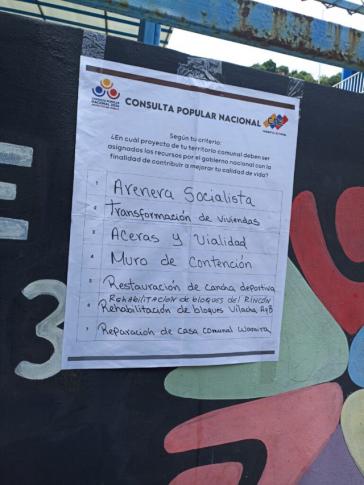 CONSULTA POPULAR NACIONAL
Según tu criterio:
¿En cuál proyecto de tu territorio comunal deben ser
asignados los recursos por el gobierno nacional con la
finalidad de contribuir a mejorar tu calidad de vida?
1 Arenera Socialista
2 Transformación de viviendas
3 Aceras y Vialidad
4 Muro de Contención
5 Restauración de cancha deportiva
6 REHABILITACION de bloques del RINCÓN
Rehabilitación de bloques Vilacha AyB
7 Reparación de casa comunal Waraira
E
3